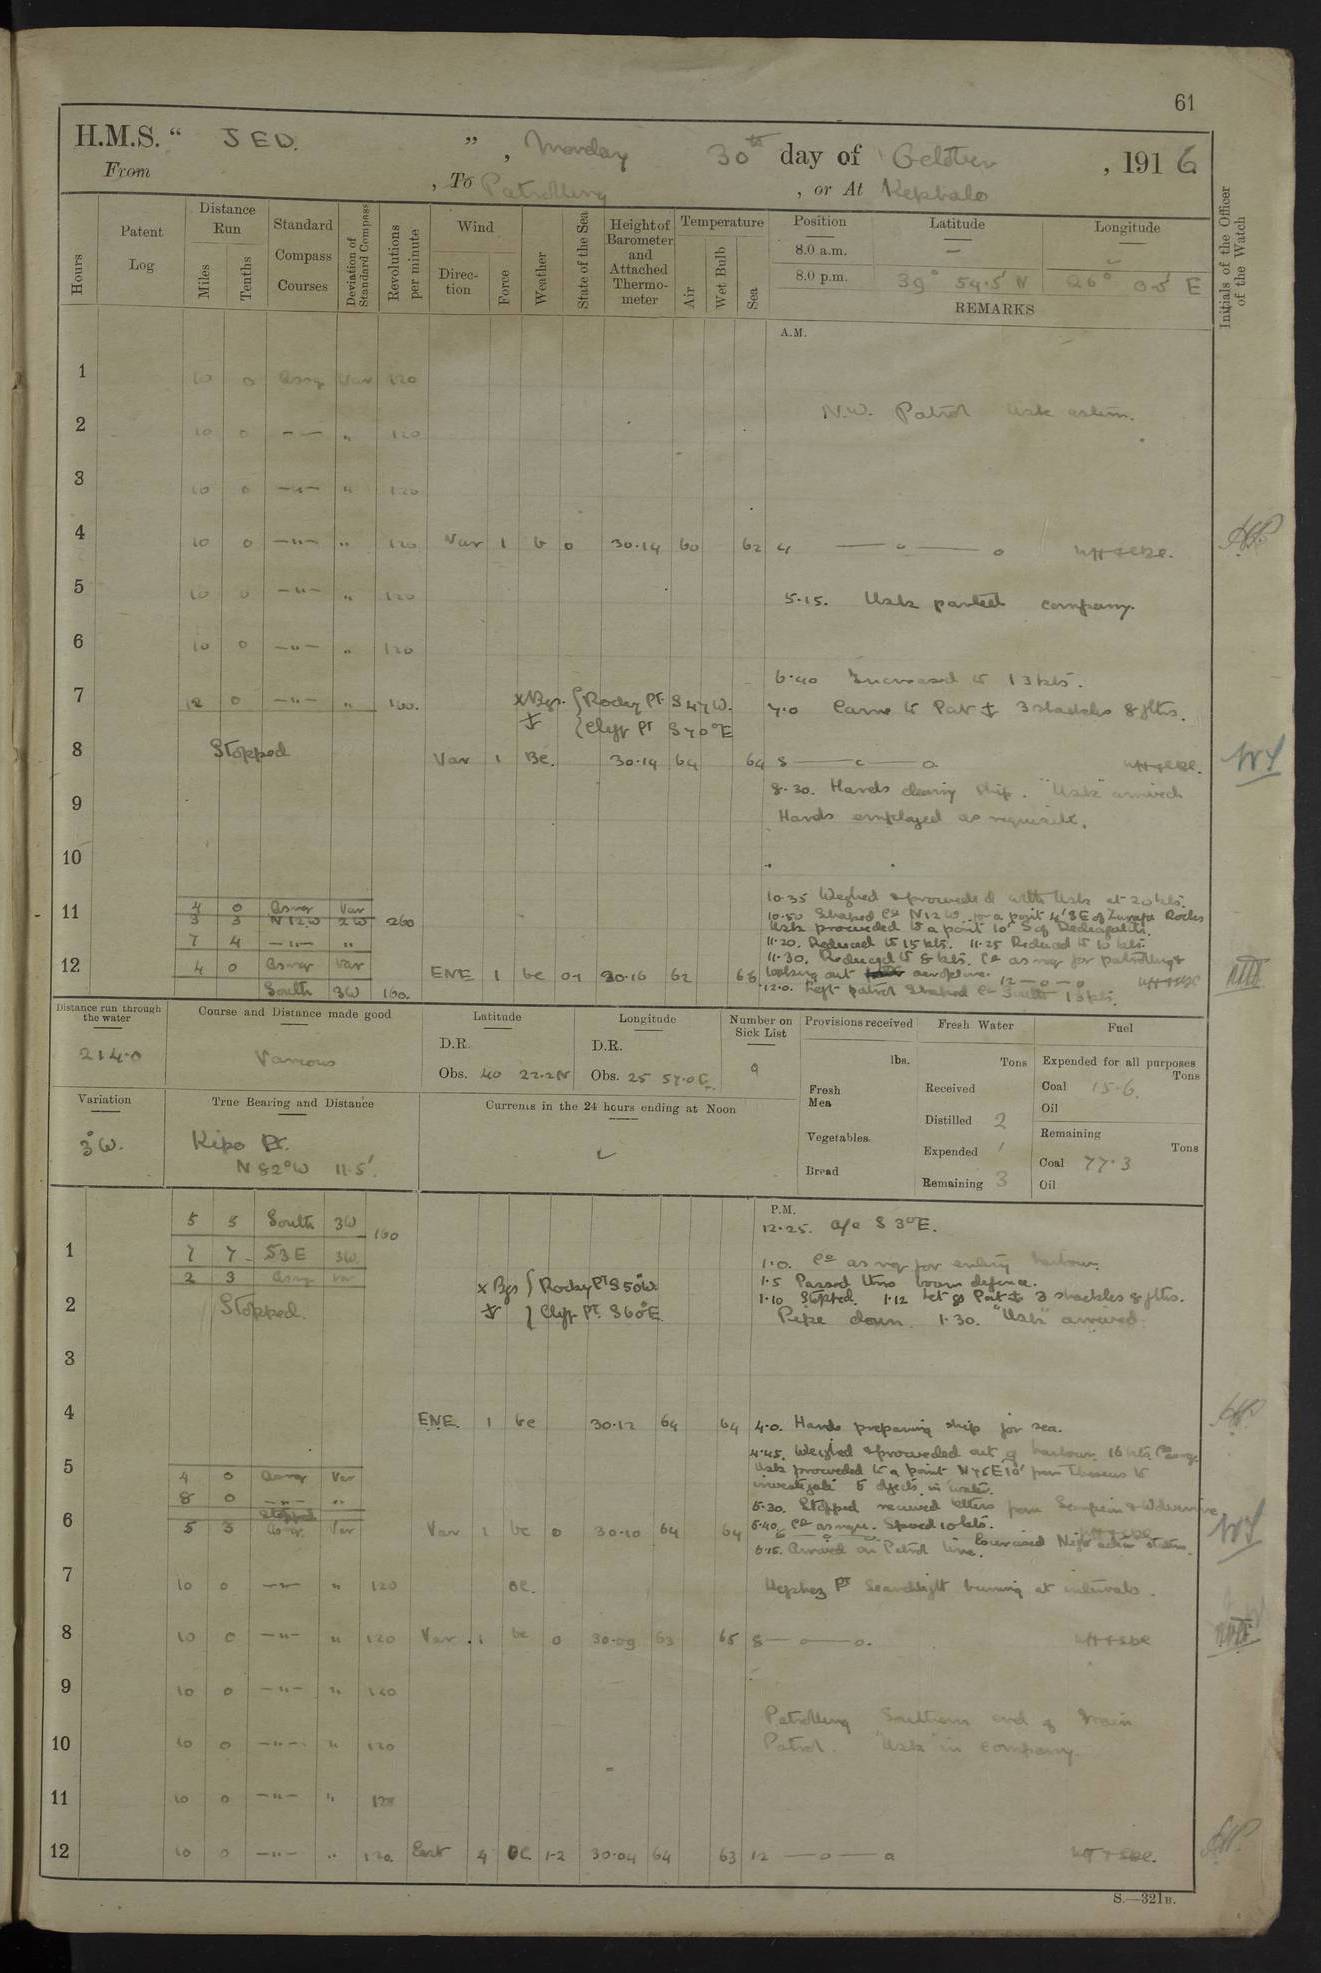 61
H.M.S. “ JED. ” , Monday 30th day of October , 1916
From , To Patrolling , or At Kephalo
Hours
Patent Log
Distance Run
Miles
Tenths
Standard Compass Courses
Deviation of Standard Compass
Revolutions per minute
Wind
Direction
Force
Weather
State of the Sea
Height of Barometer and Attached Thermometer
Temperature
Air
Wet Bulb
Sea
Position Latitude Longitude
8.0 a.m. — —
8.0 p.m. 39° 54.5' N 26° 0.5' E
REMARKS
Initials of the Officer of the Watch
A.M.
1 10 0 Var 120
N.W. Patrol Usk astern.
2 10 0 —"— " 120
3 10 0 —"— " 120
4 10 0 —"— " 120 Var 1 b 0 30.14 60 62 4 — o — o
5 10 0 —"— " 120
5.15. Usk parted company.
6 10 0 —"— " 120
6.40 Increased to 13 kts.
7 12 0 —"— " 160. x Bgs. { Rocky Pt S 47 W. 7.0 Came to Port ⚓ 3 shackles 8 fths.
⚓ { Cliff Pt S 70°E
8 Stopped Var 1 Bc. 30.14 64 64 8 — o — o
8.30. Hands cleaning ship. "Usk" arrived
9
Hands employed as requisite.
10
10.35 Weighed & proceeded with Usk at 20 kts.
11 4 0 Var
3 3 N12W 2W 260 10.50 Shaped Co N12W for a point 4'SE of Zurafa Rocks
Usk proceeded to a point 10' S of Dedeagatch.
7 4 —"— " 11.20. Reduced to 15 kts. 11.25 Reduced to 10 kts.
11.30. Reduced to 8 kts. Co as req for patrolling &
12 4 0 Var ENE 1 bc 01 30.16 62 66 looking out aeroplane. 12 — o — o
South 3W 160. 12.0. Left patrol Shaped Co South 13 kts.
Distance run through the water
214.0
Course and Distance made good
Various
Latitude
D.R.
Obs. 40 22.2N
Longitude
D.R.
Obs. 25 57.0E.
Number on Sick List
9
Provisions received
lbs.
Fresh Mea
Vegetables
Bread
Fresh Water
Tons
Received
Distilled 2
Expended 1
Remaining 3
Fuel
Expended for all purposes
Tons
Coal 15.6.
Oil
Remaining
Tons
Coal 77.3
Oil
Variation
3°W.
True Bearing and Distance
Kipo Pt.
N 82°W 11.5'.
Currents in the 24 hours ending at Noon
P.M.
5 5 South 3W 160 12.25. a/c S 3°E.
1 7 7 S3E 3W 1.0. Co as req for entering harbour.
2 3 Var x Bgs { Rocky Pt S 50°W. 1.5 Passed thro boom defence.
2 Stopped. ⚓ { Cliff Pt. S 60°E. 1.10 Stopped. 1.12 Let go Port ⚓ 3 shackles 8 fths.
Pipe down. 1.30. "Usk" arrived.
3
4 ENE. 1 bc 30.12 64 64 4.0. Hands preparing ship for sea.
4.45. Weighed & proceeded out of harbour 16 kts Co as req.
5 4 0 Var Usk proceeded to a point N75E 10' from Theseus to
investigate 5 objects in water.
8 0 —"— " 5.30. Stopped received letters from
Stopped
6 5 3 Var Var 1 bc 0 30.10 64 64 5.40. Co as req. Speed 10 kts.
6 — o — o
6.15. Arrived on Patrol line. Exercised Night action stations.
7 10 0 —"— " 120 oc. Kephez Pt Searchlight burning at intervals.
8 10 0 —"— " 120 Var 1 bc 0 30.09 63 65 8 — o — o.
9 10 0 —"— " 120
Patrolling Southern end of Main
10 10 0 —"— " 120 Patrol. "Usk" in company.
11 10 0 —"— " 120
12 10 0 —"— " 120. East 4 oc. 1-2 30.04 64 63 12 — o — o
S.—321B.